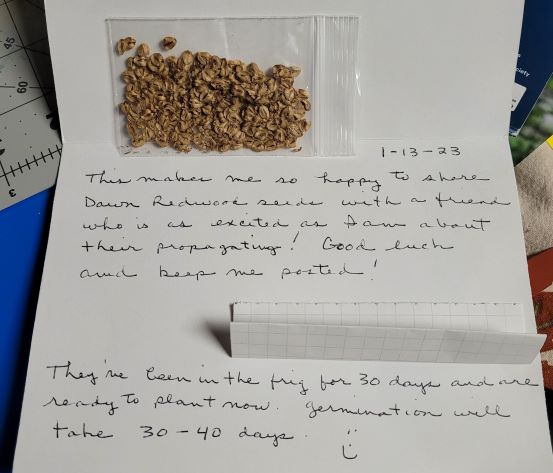 1-13-23
This makes me so happy to share
Dawn Redwood seeds with a friend
who is as excited as I am about
their propagating! Good luck
and keep me posted!
They've been in the frig for 30 days and are
ready to plant now. Germination will
take 30-40 days. :)
45
60